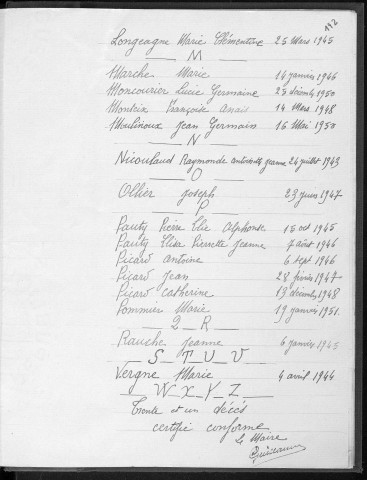 112
Longeagne Marie Clémentine 25 Mars 1945
M
Marche Marie 14 janvier 1946
Moncourier Lucie Germaine 23 décemb 1950
Monteix Françoise anaïs 14 Mars 1948
Moulinoux Jean Germain 16 Mai 1950
N
Nicoulaud Raymonde antoinette jeanne 24 juillet 1943
O
Ollier Joseph 23 juin 1947
P
Pauty Pierre Elie Alphonse 15 oct 1945
Pauty Elisa Pierrette Jeanne 7 aout 1946
Picard antoine 6 sept 1946
Picard Jean 28 février 1947
Picard Catherine 13 décemb 1948
Pommier Marie 19 janvier 1951.
Q_R
Rauche Jeanne 6 janvier 1945
S_T_U_V
Vergne Marie 4 avril 1944
W_X_Y_Z_
Trente et un décès
certifié conforme
Le Maire